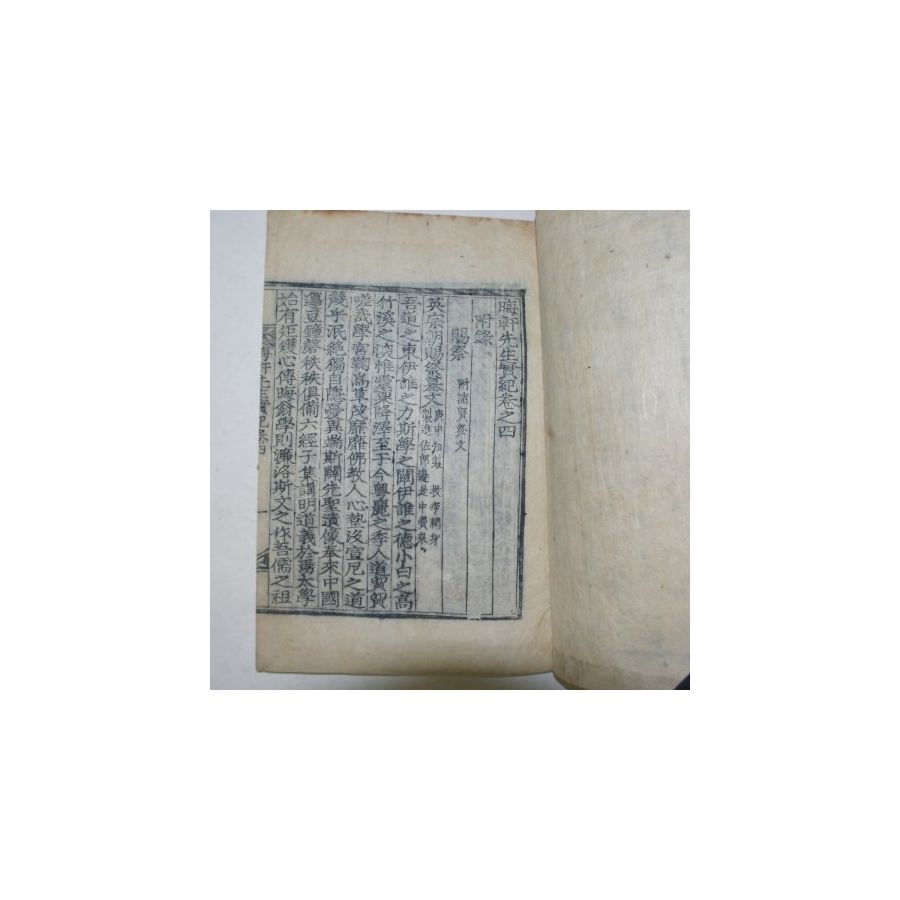 晦軒先生實紀卷之四
附錄
賜祭 附諸賢祭文
英宗朝賜祭墓文 庚申知製 教李
製進佐郎
吾道之東伊誰之力斯學之闢伊誰之德小白之高
竹溪之淡惟靈東降澤至于今粤麗之季人道貿貿
嗟哉學宮鞠爲草茂靡靡佛教人心墊沒宣尼之道
幾乎泯絶獨自隱憂再端斯闢先聖遺像奉來中國
籩豆鐘磬秩秩俱備六經子集講明道義於焉太學
始有矩矱心傳晦翁學則濂洛斯文之作吾儒之祖